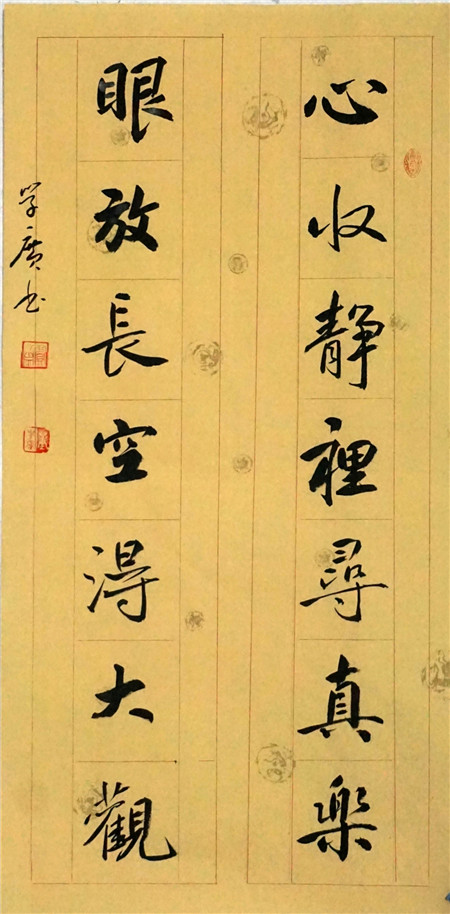 心收静裡尋真樂
眼放長空得大觀
学廣书